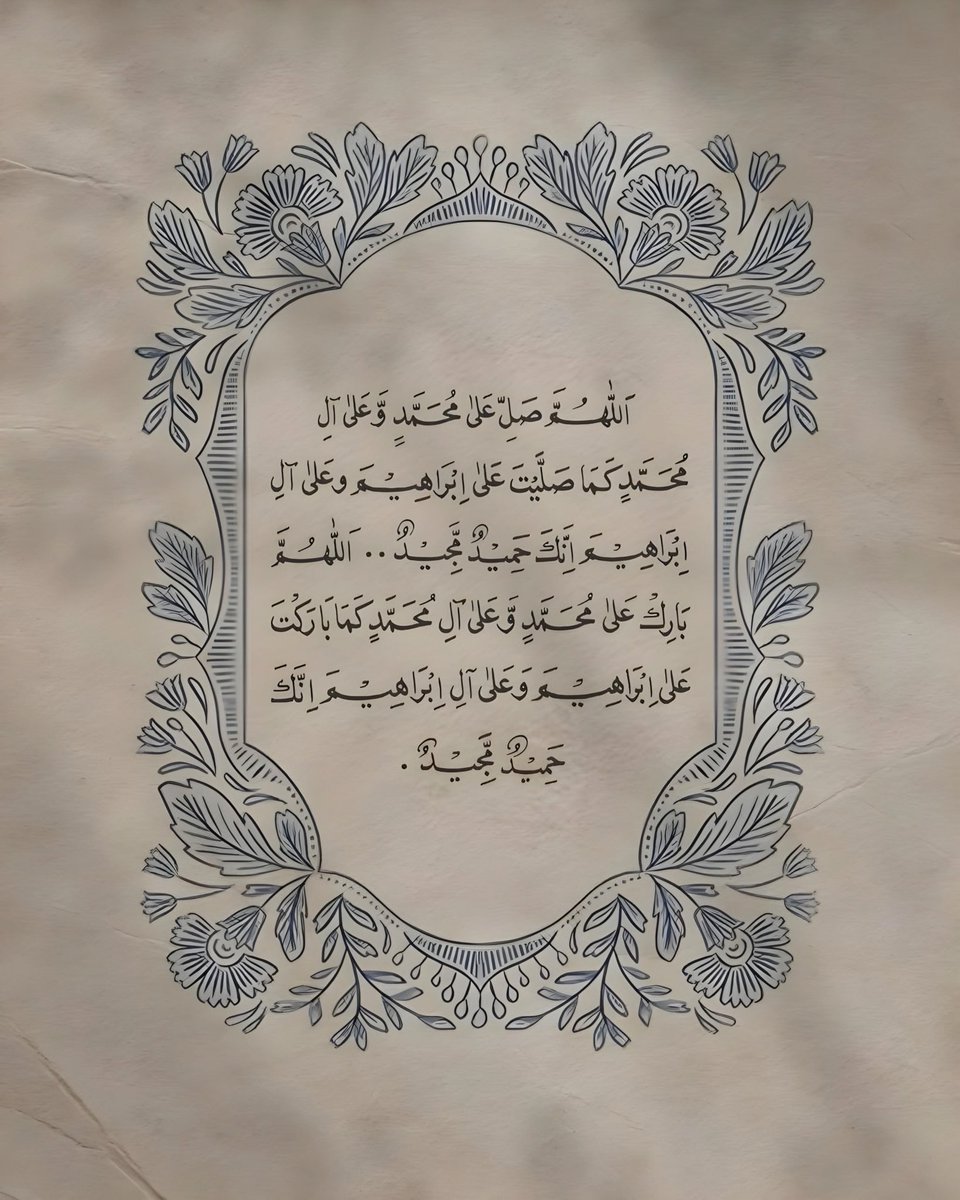 اَللّٰهُمَّ صَلِّ عَلىٰ مُحَمَّدٍ وَّعَلىٰ آلِ
مُحَمَّدٍ كَمَا صَلَّيْتَ عَلىٰ اِبْرَاهِيْمَ وعَلىٰ آلِ
اِبْرَاهِيْمَ اِنَّكَ حَمِيْدٌ مَّجِيْدٌ .. اَللّٰهُمَّ
بَارِكْ عَلىٰ مُحَمَّدٍ وَّعَلىٰ آلِ مُحَمَّدٍ كَمَا بَارَكْتَ
عَلىٰ اِبْرَاهِيْمَ وَعَلىٰ آلِ اِبْرَاهِيْمَ اِنَّكَ
حَمِيْدٌ مَّجِيْدٌ .